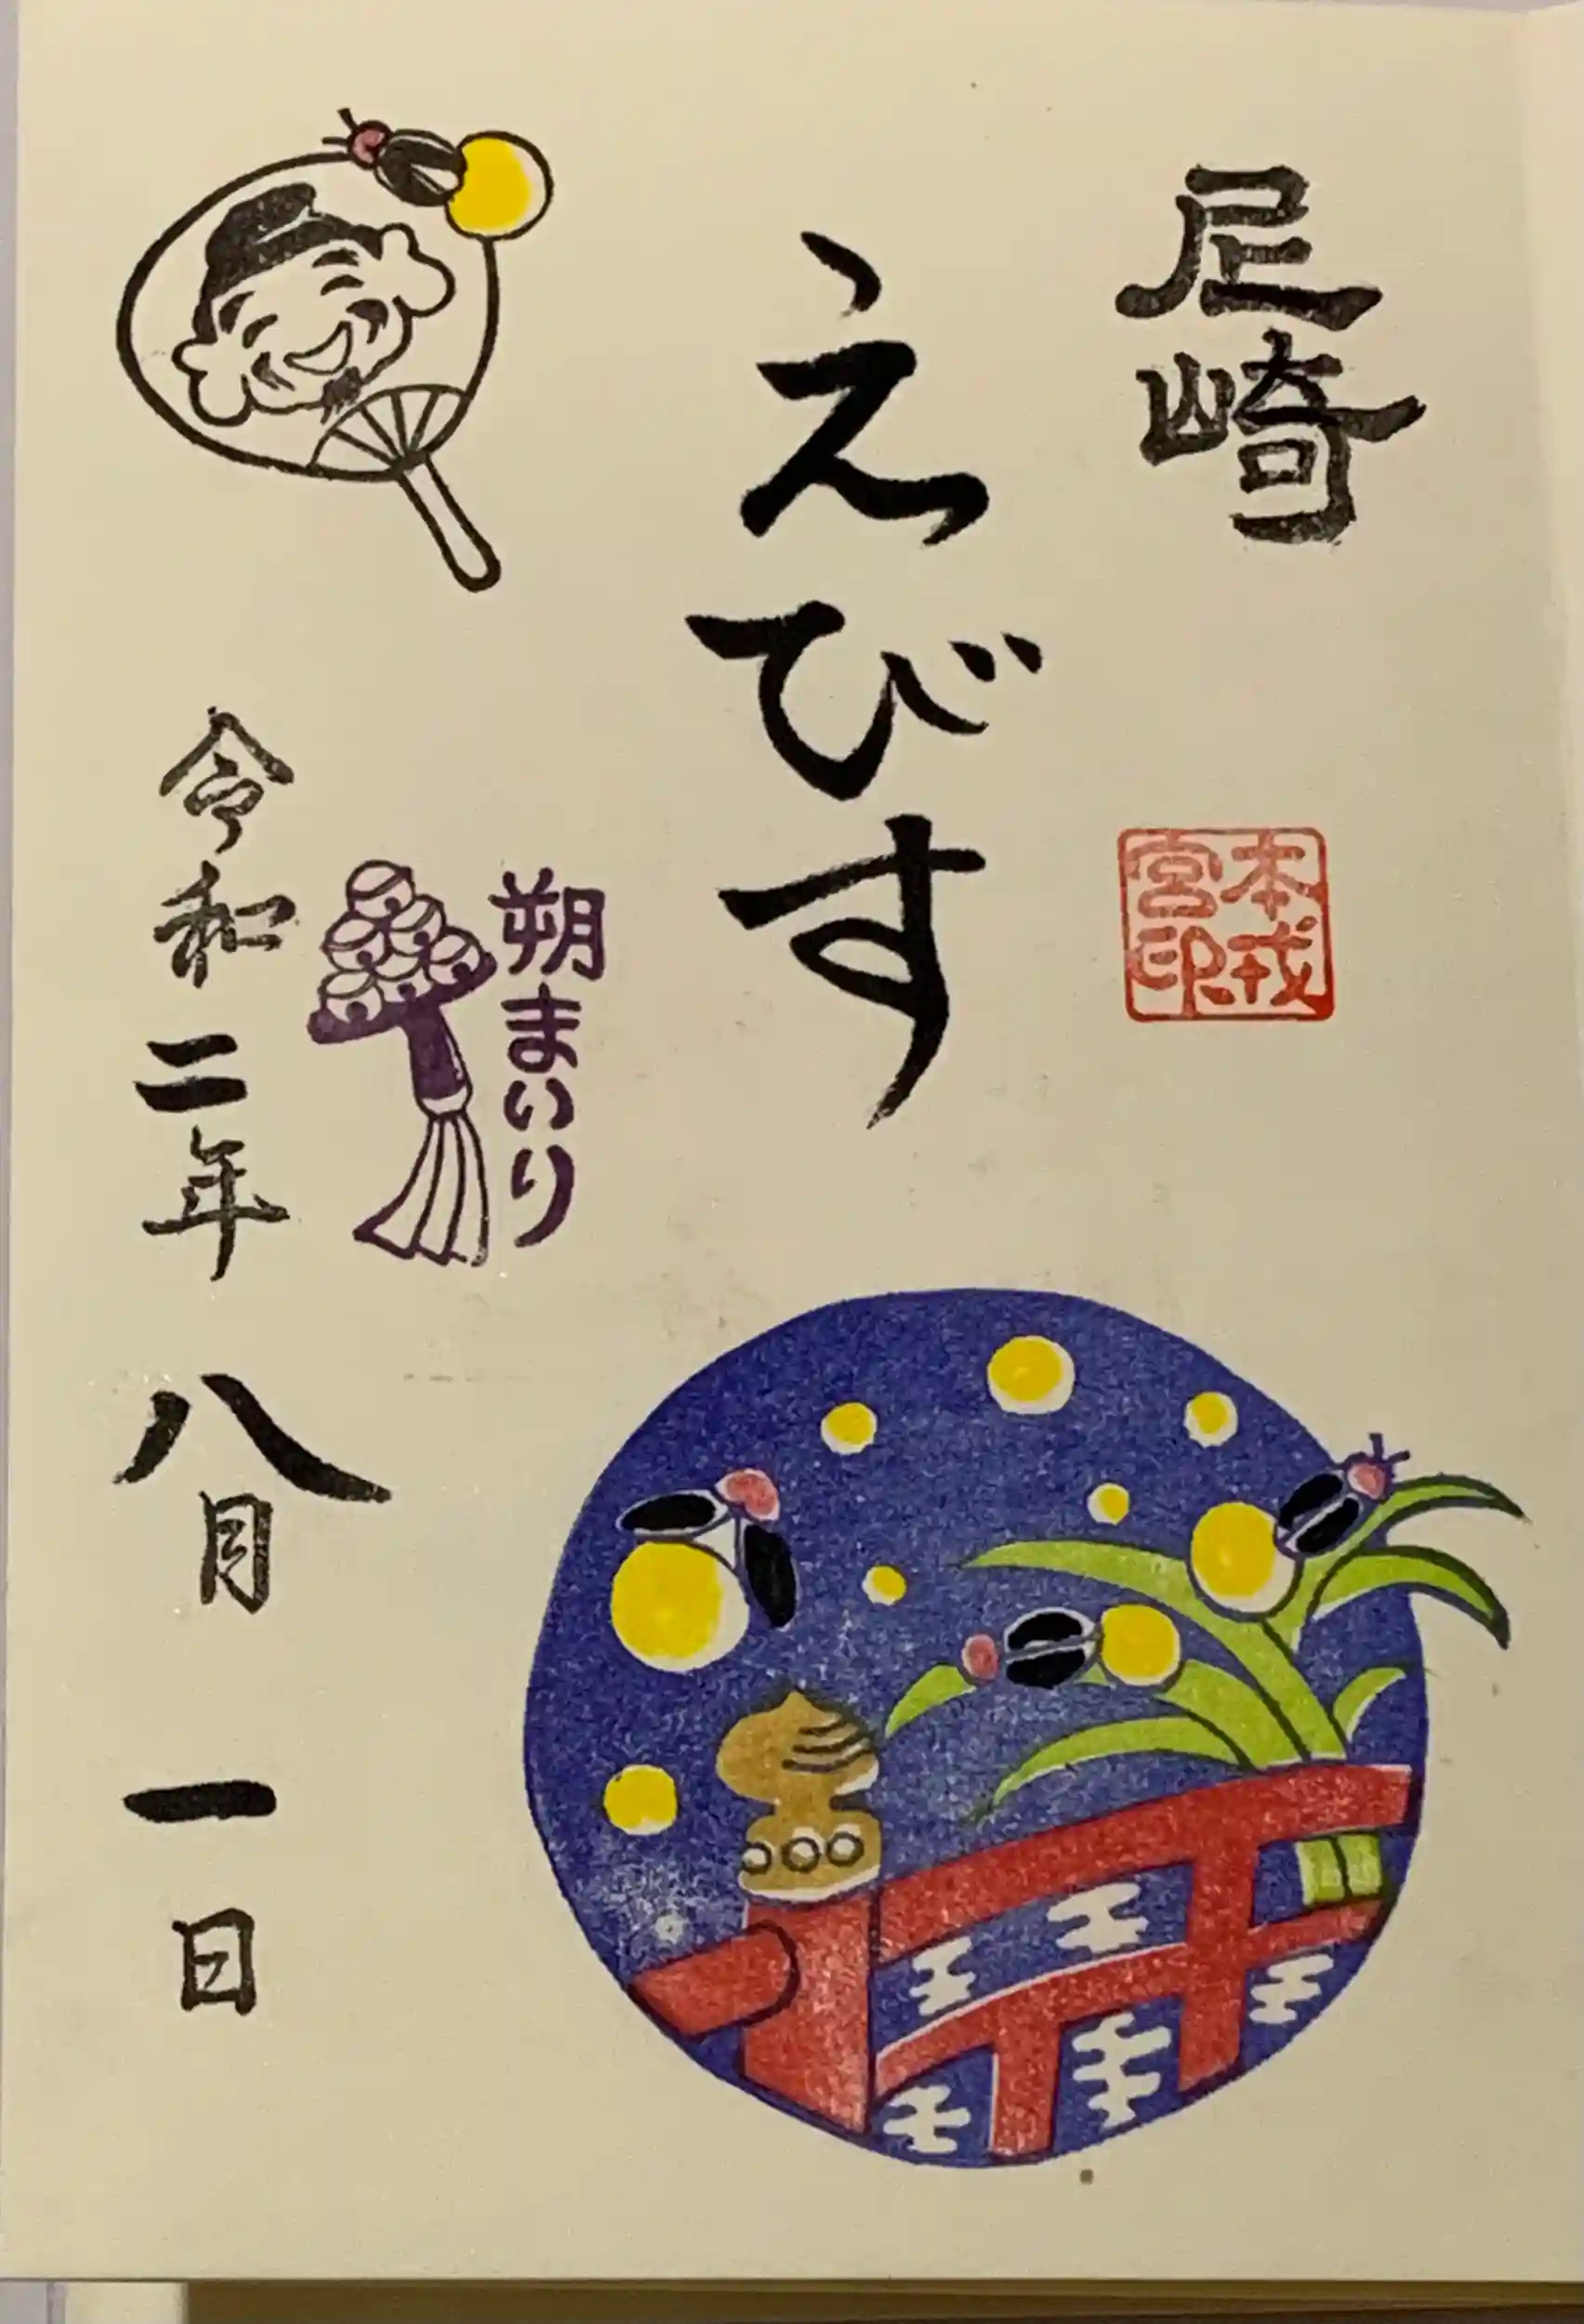 尼崎
本戎宮印
えびす
朔まいり
令和二年八月一日